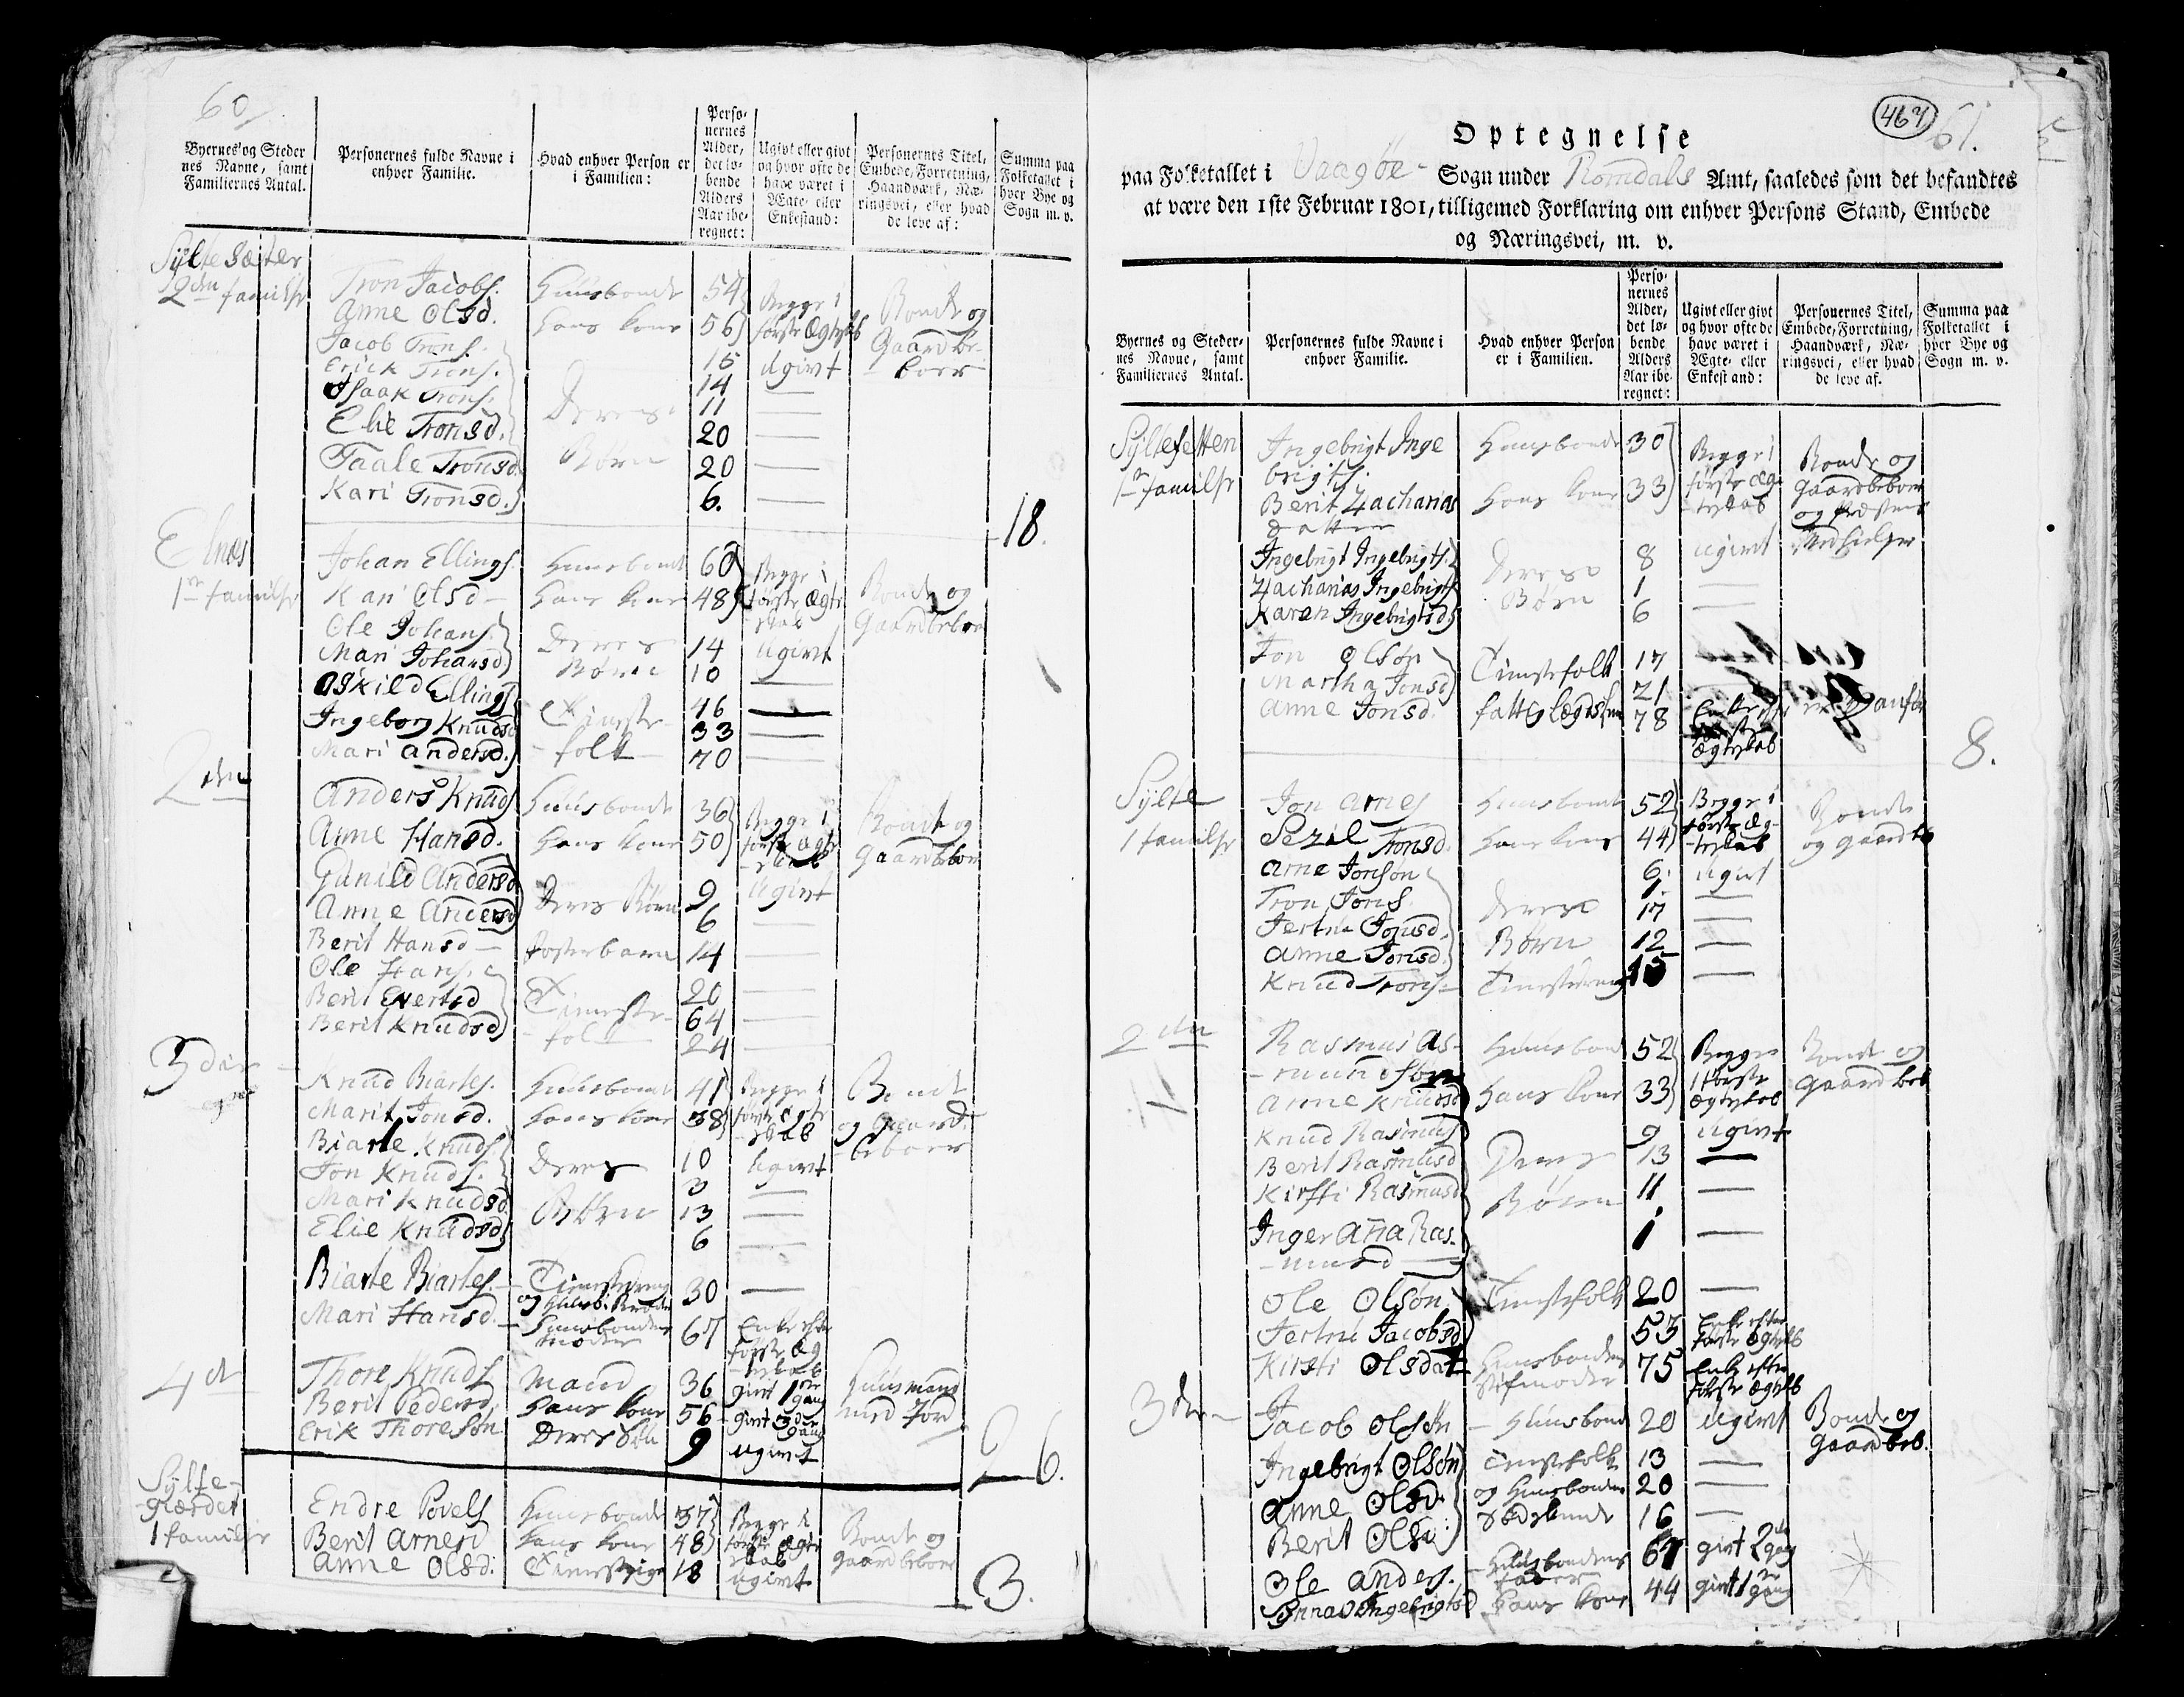 60/
Byernes og Steder
nes Navne, samt
Familiernes Antal.
Personernes fulde Navne i
enhver Familie.
Hvad enhver Person er
i Familien:
Perso-
nernes
Alder,
det lø-
bende
Alders
Aar ibe-
regnet:
Ugivt eller givt
og hvor ofte de
have været i
Ægte- eller
Enkestand:
Personernes Titel,
Embede, Forretning,
Haandværk, Næ-
ringsvei, eller hvad
de leve af:
Summa paa
Folketallet i
hver Bye og
Sogn m. v.
Sylte Sæter
2den familie
Tron Jacobs. Huusbonde 54 Begge i Bonde og
Anne Olsd. Hans kone 56 første Ægteskab Gaardbe-
Jacob Trons. 15 ugivt boer
Erick Trons. 14 —
Isaak Trons. Deres 11 —
Elie Tronsd. 20 —
Taale Tronsd. Børn 20 —
Kari Tronsd. 6. —
18.
Elnes
1ste familie
Johan Ellings. Huusbonde 60 Begge i Bonde og
Kari Olsd — Hans kone 48 første Ægte skab Gaardbeboer
Ole Johans. Deres 14 ugivt
Mari Johansd Børn 10 —
Askild Ellings Tieneste- 46 —
Ingeborg Knudsd 33 —
Mari Andersd. folk 70 —
2den
Anders Knuds Huusbonde 36 Begge i Bonde og
Anne Hansd. Hans kone 50 første Ægte skab Gaardbeboer
Gunild Andersd 9 ugivt
Anne Andersd Deres Børn 6 —
Berit Hansd — Fosterbarn 14 —
Ole Hans. 20 —
Berit Evertsd Tieneste- 64 —
Berit Knudsd folk 24 —
3die
Knud Biartes. Huusbonde 41 Begge i Bonde
Marit Jonsd. Hans kone 38 første Ægte skab og Gaard-
Biarte Knuds. Deres 10 ugivt beboer
Jon Knuds. 3 —
Mari Knudsd. Børn 13 —
Elie Knudsd 6 —
Biarte Biartes. — Tienestedreng og Huusb. Broder 30 —
Mari Hansd. — Huusbondens moder 67 Enke efter første Æg-teskab
4de
Thore Knuds Mand 36 givt 1ste gang Huusmand
Berit Pedersd. Hans kone 56 givt 3die gang med Jord
Erik Thoresøn Deres Søn 9 ugivt
26.
Sylte-
giærdet
1 familie
Endre Povels Huusbonde 37 Begge i Bonde og
Berit Arnesd Hans kone 48 første Ægte skab gaardbeboer
Anne Olsd. Tienestepige 18 ugivt
3.
464
61.
Optegnelse
paa Folketallet i Vaagøe Sogn under Romdals Amt, saaledes som det befandtes
at være den 1ste Februar 1801, tilligemed Forklaring om enhver Persons Stand, Embede
og Næringsvei, m. v.
Byernes og Steder-
nes Navne, samt
Familiernes Antal.
Personernes fulde Navne i
enhver Familie.
Hvad enhver Person
er i Familien.
Perso-
nernes
Alder,
det lø-
bende
Alders
Aar ibe-
regnet:
Ugivt eller givt
og hvor ofte de
have været i
Ægte- eller
Enkestand:
Personernes Titel,
Embede, Forretning,
Haandværk, Næ-
ringsvei, eller hvad
de leve af.
Summa paa
Folketallet i
hver Bye og
Sogn m. v.
Syltefetten
1ste familie
Ingebrigt Inge Huusbonde 30 Begge i Bonde og
brigts. første Æg- Gaardbeboer
Berit Zacharias Hans kone 33 teskab og
datter Medhielper
Ingebrigt Ingebrigts. Deres 8 ugivt
Zacharias Ingebrigts Børn 1 —
Karen Ingebrigtsd. 6 —
Jon Olsøn Tienestefolk 17
Martha Jonsd 21
Anne Jonsd. fattig Lægdslem 78 Enke efter første Ægteskab
8.
Sylte
1 familie
Jon Arnes Huusbonde 52 Begge i Bonde
Sezil Tronsd. Hans kone 44 første Æg-teskab og gaardb
Arne Jonsøn 6. ugivt
Tron Jons. Deres 1. —
Jertru Jonsd. 17 —
Anne Jonsd. Børn 12 —
Knud Trons. — Tienestedreng 15 —
2den
Rasmus As- Huusbond 52 Begge Bonde og
mundsøn i første gaardbeb
Anne Knudsd Hans kone 33 Ægteskab
Knud Rasmus 9 ugivt
Berit Rasmusd Deres 13 —
Kirsti Rasmusd Børn 11 —
Inger Ana Ras- 1 —
musd
Ole Olsøn Tienestefolk 20 —
Jertru Jacobsd 53 Enke efter første Ægteskb
Kirsti Olsdat Huusbondens Stifmoder 75 Enke efter første Ægteskb
3die —
Jacob Olsøn — Huusbond 20 ugivt Bonde og
Ingebrigt Olsøn Tienestefolk 13 — gaardbeb.
Anne Olsd. og Huusbondens 20 —
Berit Olsd. Sødskende 16 —
Ole Anders. — Huusbondens fader 67 givt 2den gang
Ingebrigtsd Hans kone 44 givt 1ste gang